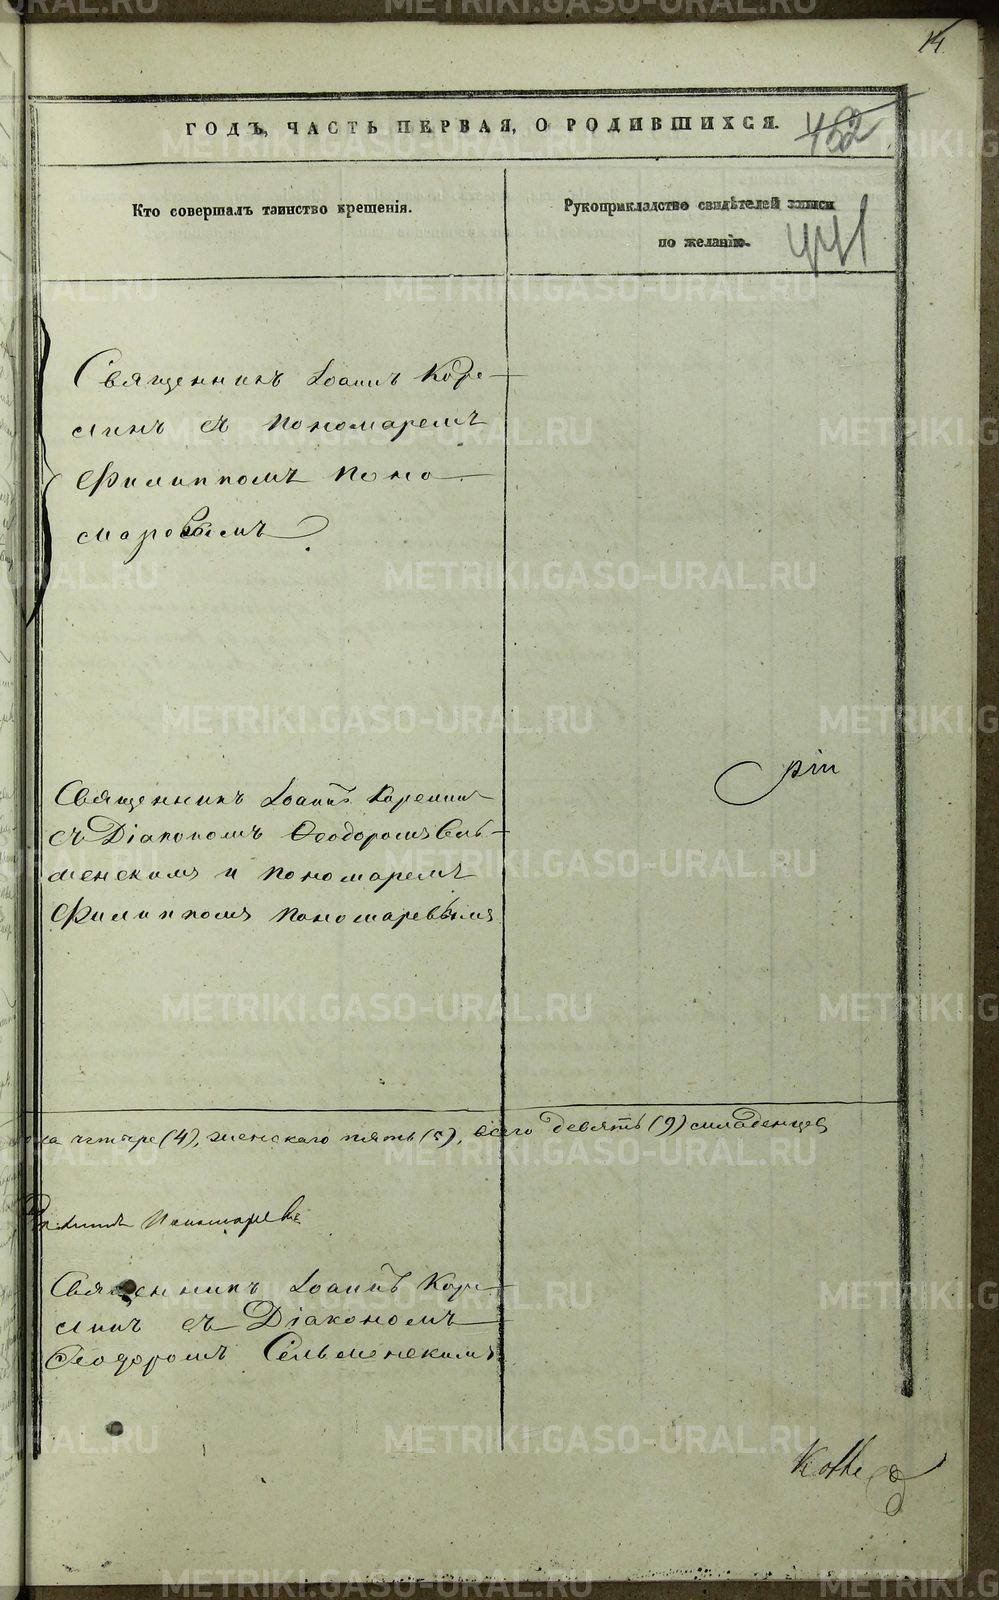 14
ГОДЪ, ЧАСТЬ ПЕРВАЯ, О РОДИВШИХСЯ.
462
Кто совершалъ таинство крещенія.
Рукоприкладство свидѣтелей записи
по желанію.
441
Священникъ Іоаннъ Коре-
линъ съ пономаремъ
Филиппомъ Поно
маровымъ
Священникъ Іоаннъ Корелинъ
съ Діакономъ Ѳеодоромъ Сель-
менскимъ и пономаремъ
Филиппомъ Пономаревымъ
четыре (4), женскаго пять (5), всего девять (9) младенцев
Пономаревъ
Священникъ Іоаннъ Коре
линъ съ Діакономъ
Ѳеодоромъ Сельменскимъ
METRIKI.GASO-URAL.RU